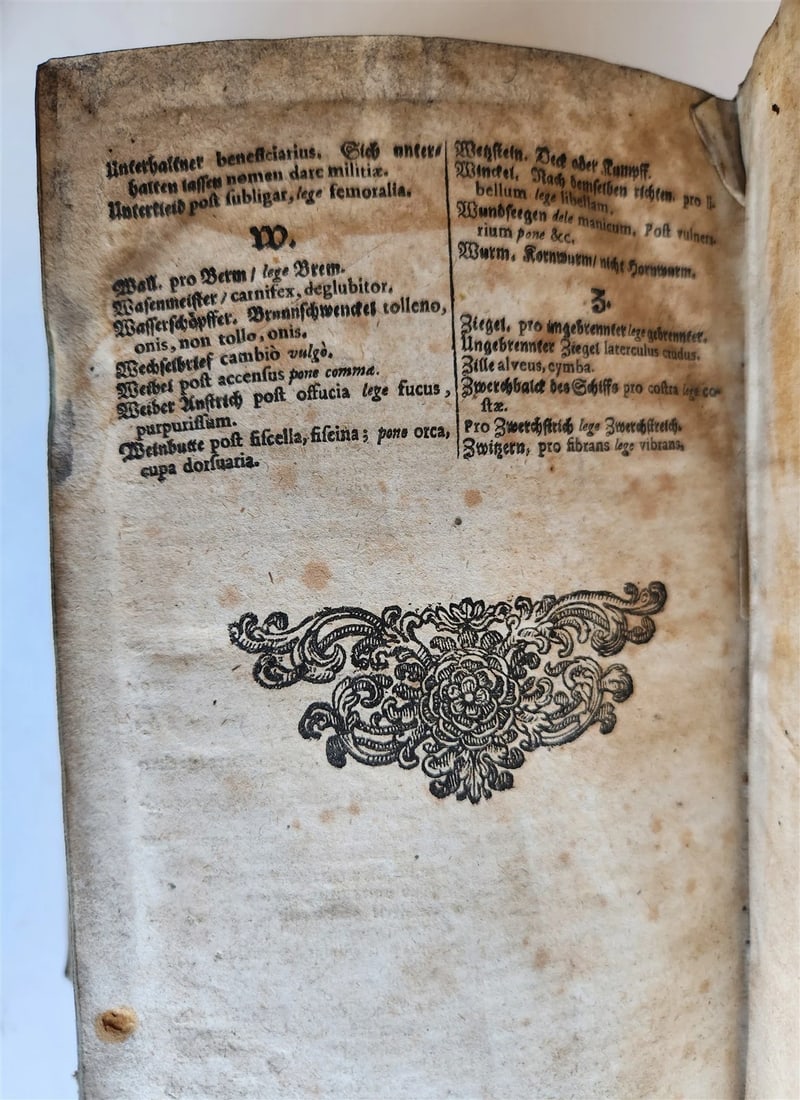 Unterhaltner beneficiarius. Sich unter⸗
halten lassen nomen dare militiæ.
Unterkleid poſt ſubligar, lege femoralia.
W.
Wall. pro Berm / lege Brem.
Waſenmeiſter / carnifex, deglubitor.
Waſſerſchöpffer. Brunnſchwenckel tolleno,
onis, non tollo, onis.
Wechſelbrief cambiò vulgò.
Weibel poſt accenſus pone comma.
Weiber Anſtrich poſt offucia lege fucus,
purpuriſſum.
Weinbutte poſt fiſcella, fiſcina; pone orca,
cupa dorſuaria.
Wetzſtein. Deck oder Kumpff.
Winckel. Nach demſelben richten. pro li⸗
bellum lege libellam.
Wundſeegen dele manicum. Poſt vulnera⸗
rium pone &c.
Wurm. Kornwurm / nicht Hornwurm.
Z.
Ziegel. pro ungebrennter lege gebrennter.
Ungebrennter Ziegel laterculus crudus.
Zille alveus, cymba.
Zwerchbalck des Schiffs pro coſtra lege co⸗
ſtæ.
Pro Zwerchſtrich lege Zwerchſtreich.
Zwitzern, pro fibrans lege vibrans.